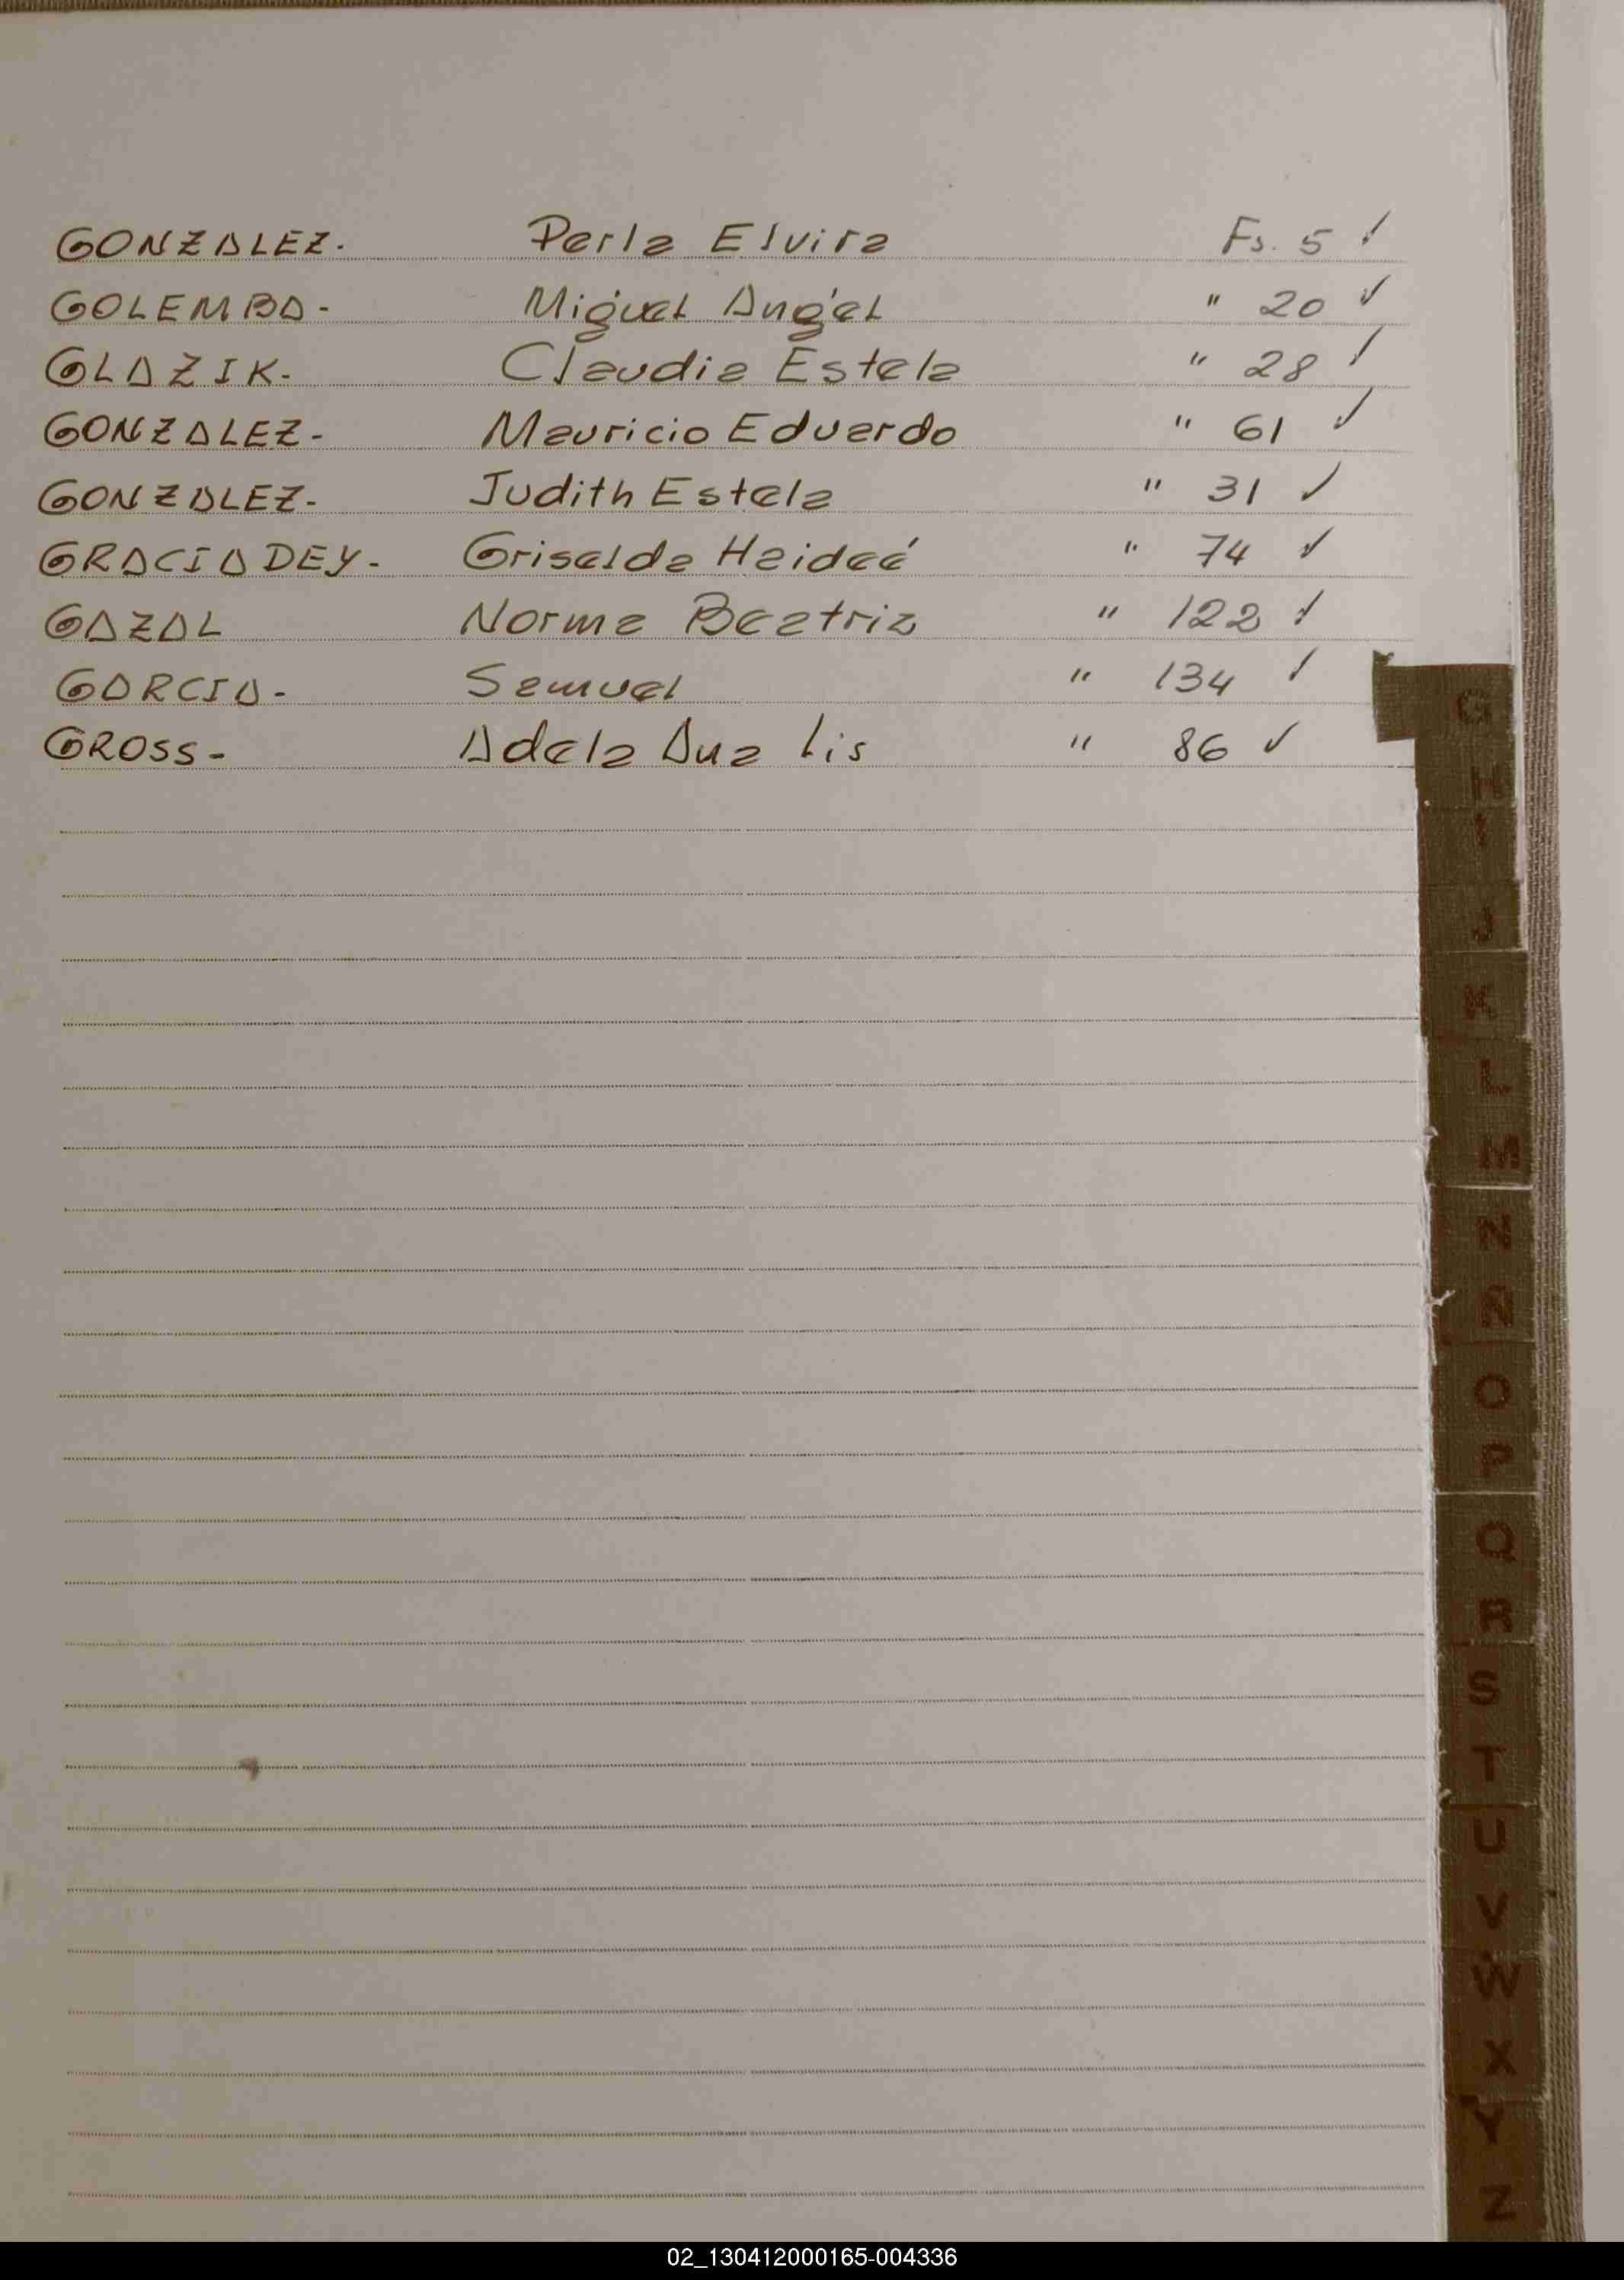 GONZALEZ. Perla Elvira Fs. 5 ✓
GOLEMBA - Miguel Angel " 20 ✓
GLAZIK. Claudia Estela " 28 ✓
GONZALEZ - Mauricio Eduardo " 61 ✓
GONZALEZ - Judith Estela " 31 ✓
GRACIADEY - Griselda Haideé " 74 ✓
GAZAL Norma Beatriz " 122 ✓
GARCIA - Samuel " 134 ✓
GROSS - Adela Ana Lis " 86 ✓
G
H
I
J
K
L
M
N
Ñ
O
P
Q
R
S
T
U
V
W
X
Y
Z
02_130412000165-004336